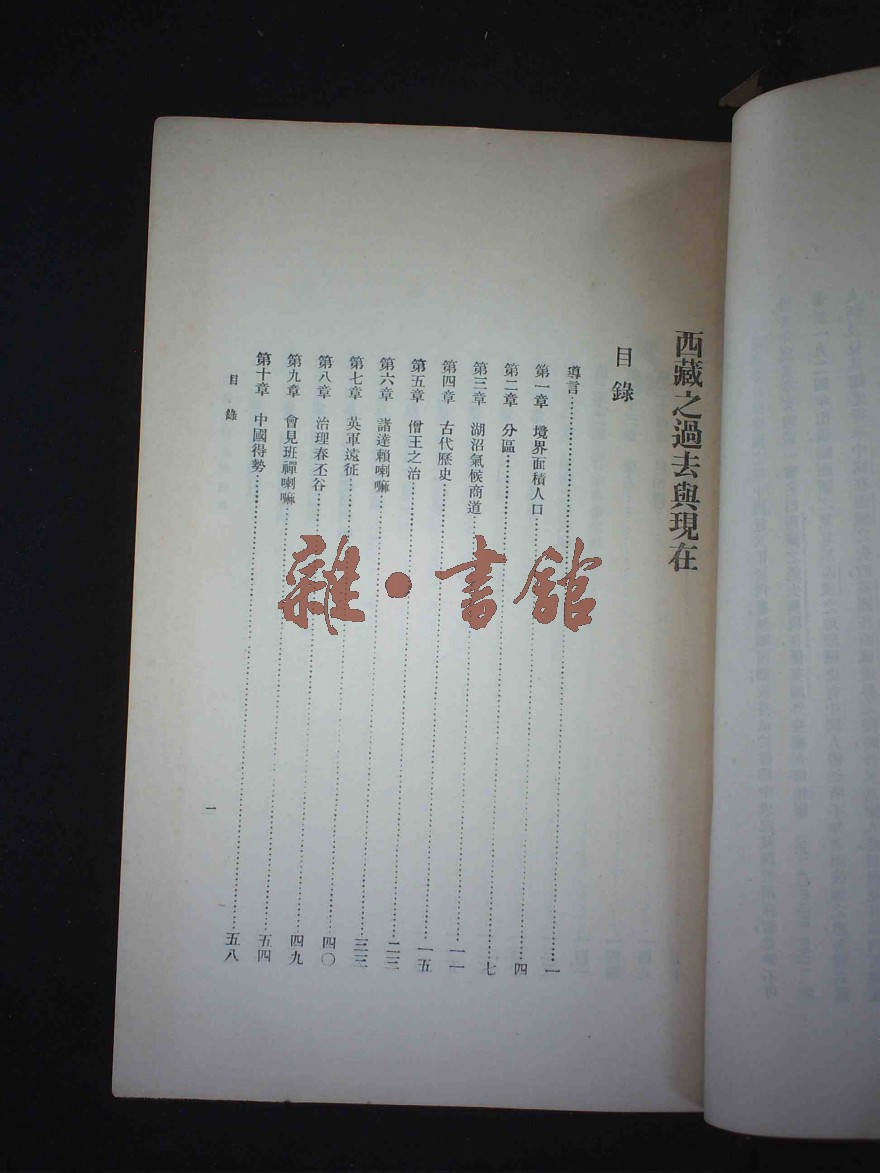 西藏之過去與現在
目錄
導言……一
第一章 境界面積人口……四
第二章 分區……七
第三章 湖沼氣候商道……一一
第四章 古代歷史……一五
第五章 僧王之治……二三
第六章 諸達賴喇嘛……三三
第七章 英軍遠征……四〇
第八章 治理春丕谷……四九
第九章 會見班禪喇嘛……五四
第十章 中國得勢……五八
目錄
一
雜·書館